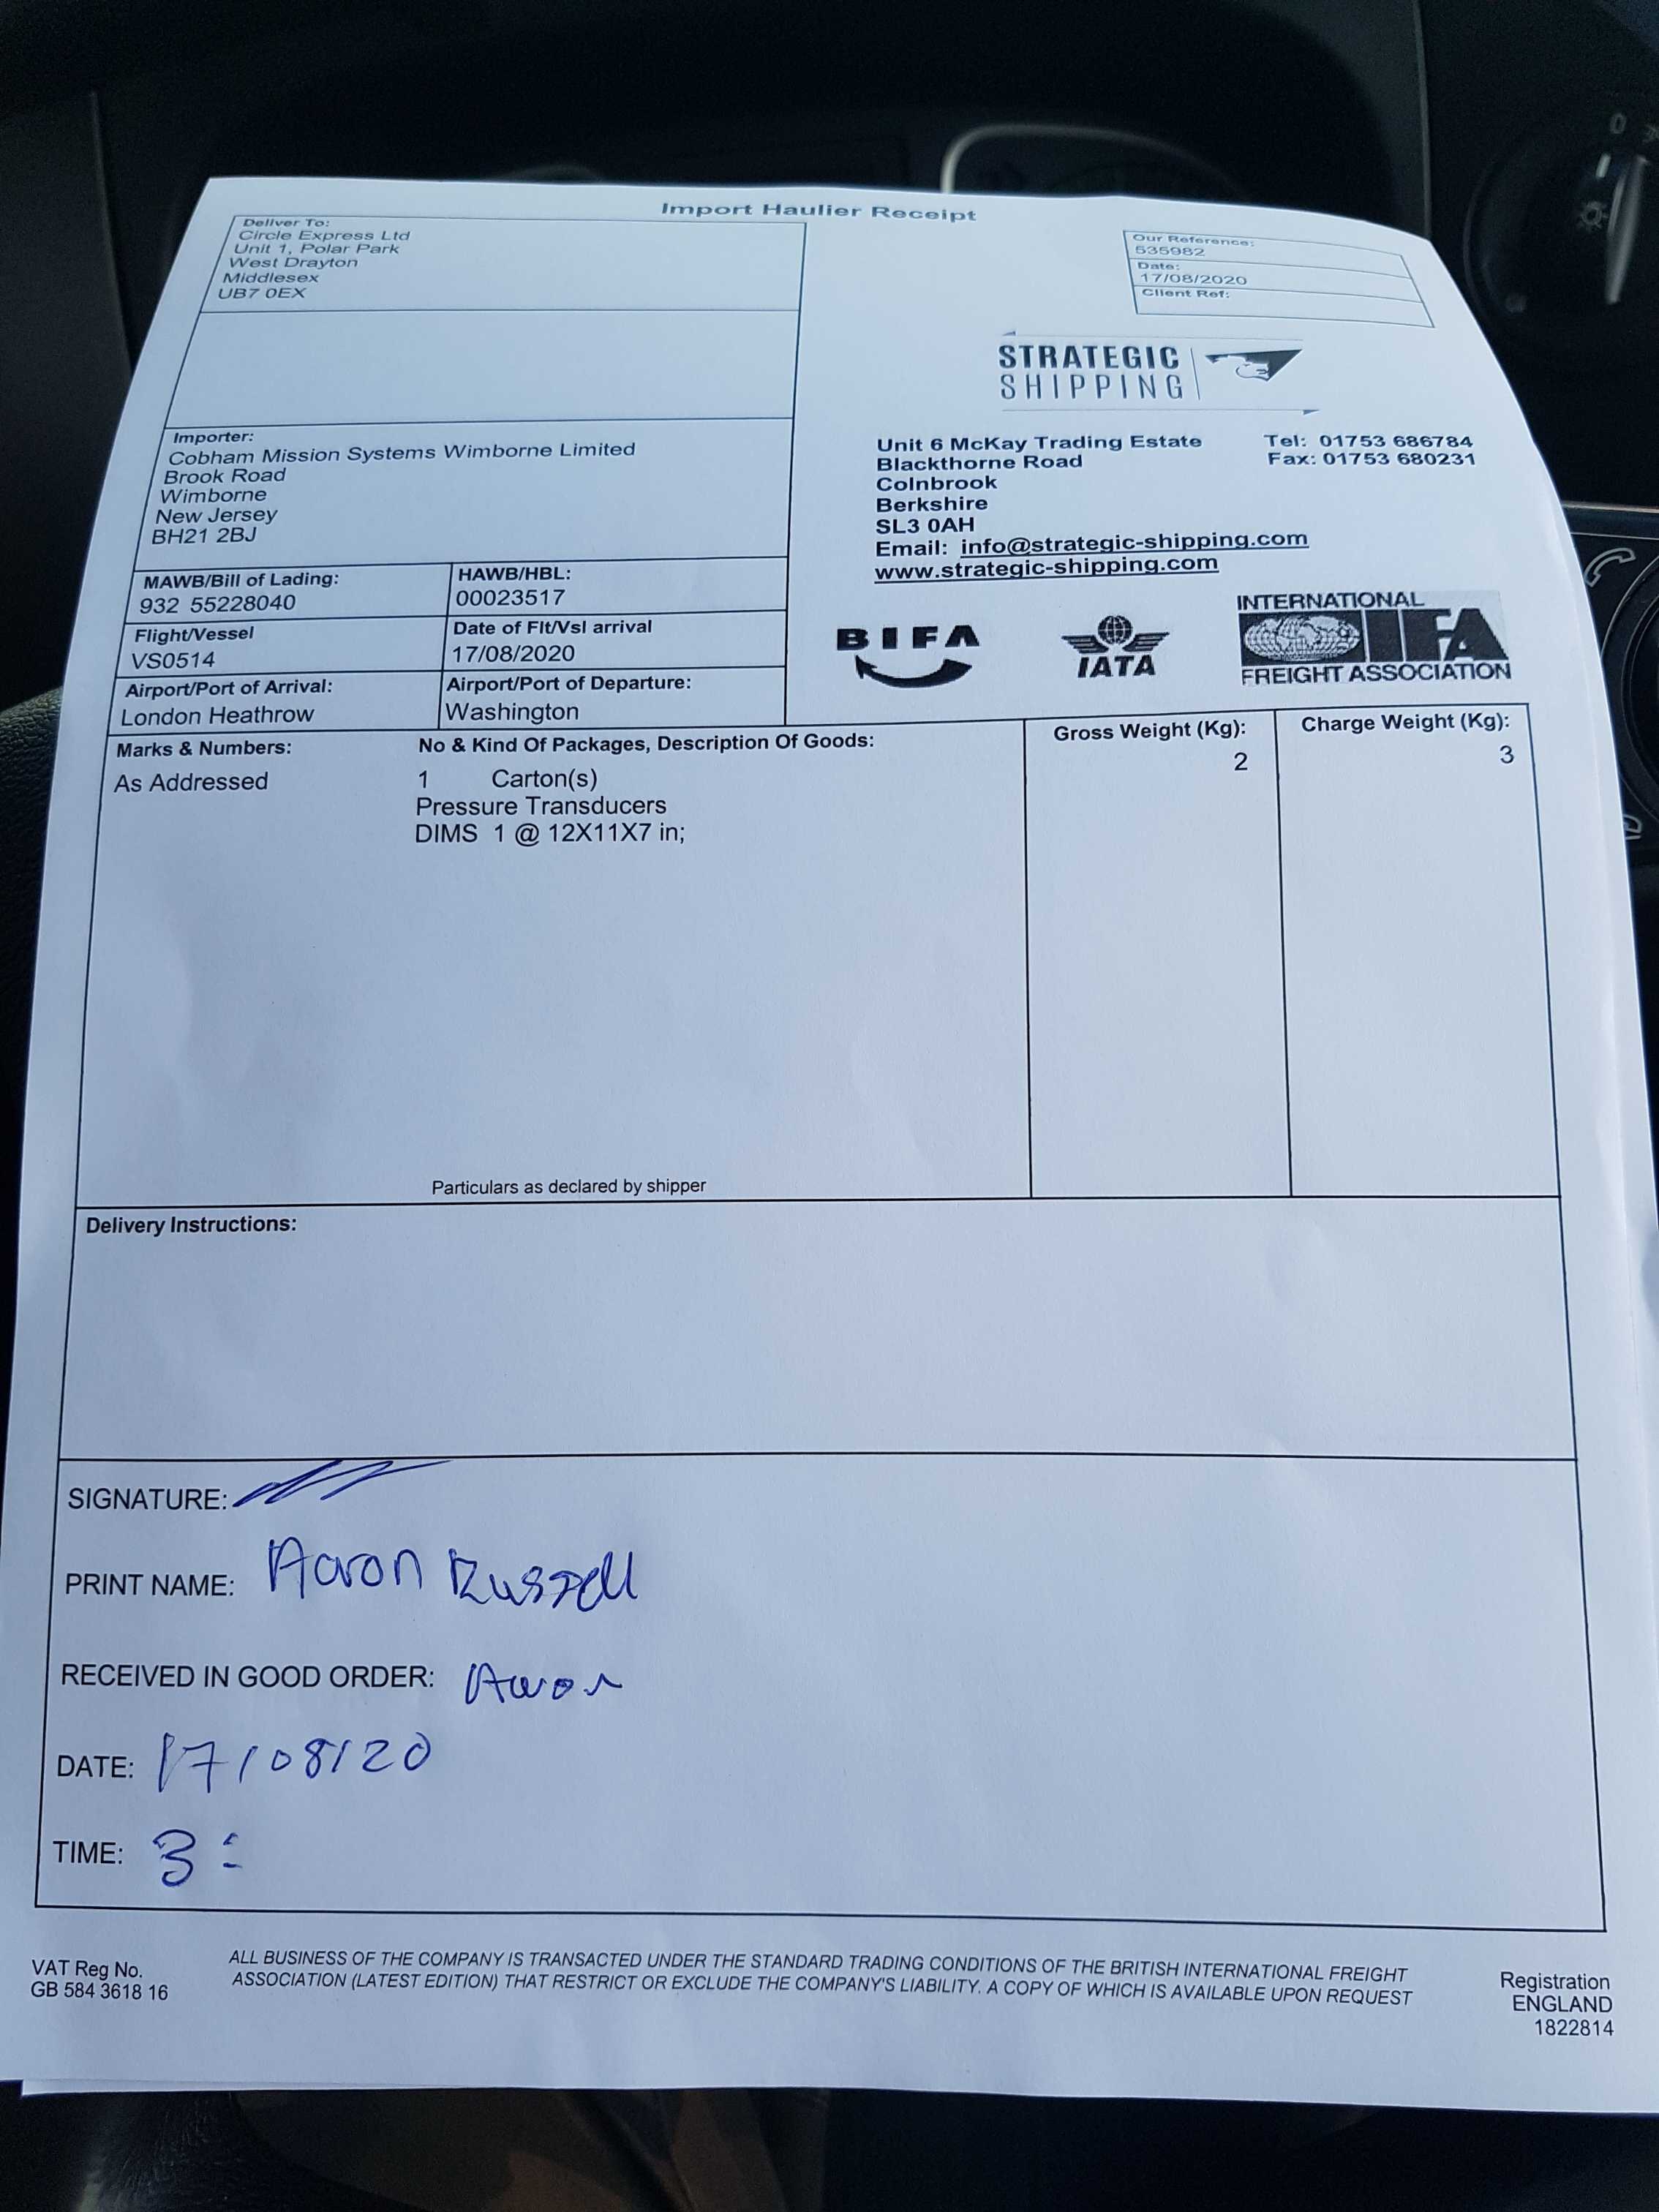 Import Haulier Receipt
Deliver To:
Circle Express Ltd
Unit 1, Polar Park
West Drayton
Middlesex
UB7 0EX
Our Reference:
535982
Date:
17/08/2020
Client Ref:
STRATEGIC
SHIPPING
Importer:
Cobham Mission Systems Wimborne Limited
Brook Road
Wimborne
New Jersey
BH21 2BJ
Unit 6 McKay Trading Estate
Blackthorne Road
Colnbrook
Berkshire
SL3 0AH
Email: info@strategic-shipping.com
www.strategic-shipping.com
Tel: 01753 686784
Fax: 01753 680231
MAWB/Bill of Lading:
932 55228040
HAWB/HBL:
00023517
Flight/Vessel
VS0514
Date of Flt/Vsl arrival
17/08/2020
Airport/Port of Arrival:
London Heathrow
Airport/Port of Departure:
Washington
BIFA
IATA
INTERNATIONAL
IFA
FREIGHT ASSOCIATION
Marks & Numbers:
As Addressed
No & Kind Of Packages, Description Of Goods:
1 Carton(s)
Pressure Transducers
DIMS 1 @ 12X11X7 in;
Gross Weight (Kg):
2
Charge Weight (Kg):
3
Particulars as declared by shipper
Delivery Instructions:
SIGNATURE:
PRINT NAME: Aaron Russell
RECEIVED IN GOOD ORDER: Aaron
DATE: 17/08/20
TIME: 3:
VAT Reg No.
GB 584 3618 16
ALL BUSINESS OF THE COMPANY IS TRANSACTED UNDER THE STANDARD TRADING CONDITIONS OF THE BRITISH INTERNATIONAL FREIGHT
ASSOCIATION (LATEST EDITION) THAT RESTRICT OR EXCLUDE THE COMPANY'S LIABILITY. A COPY OF WHICH IS AVAILABLE UPON REQUEST
Registration
ENGLAND
1822814